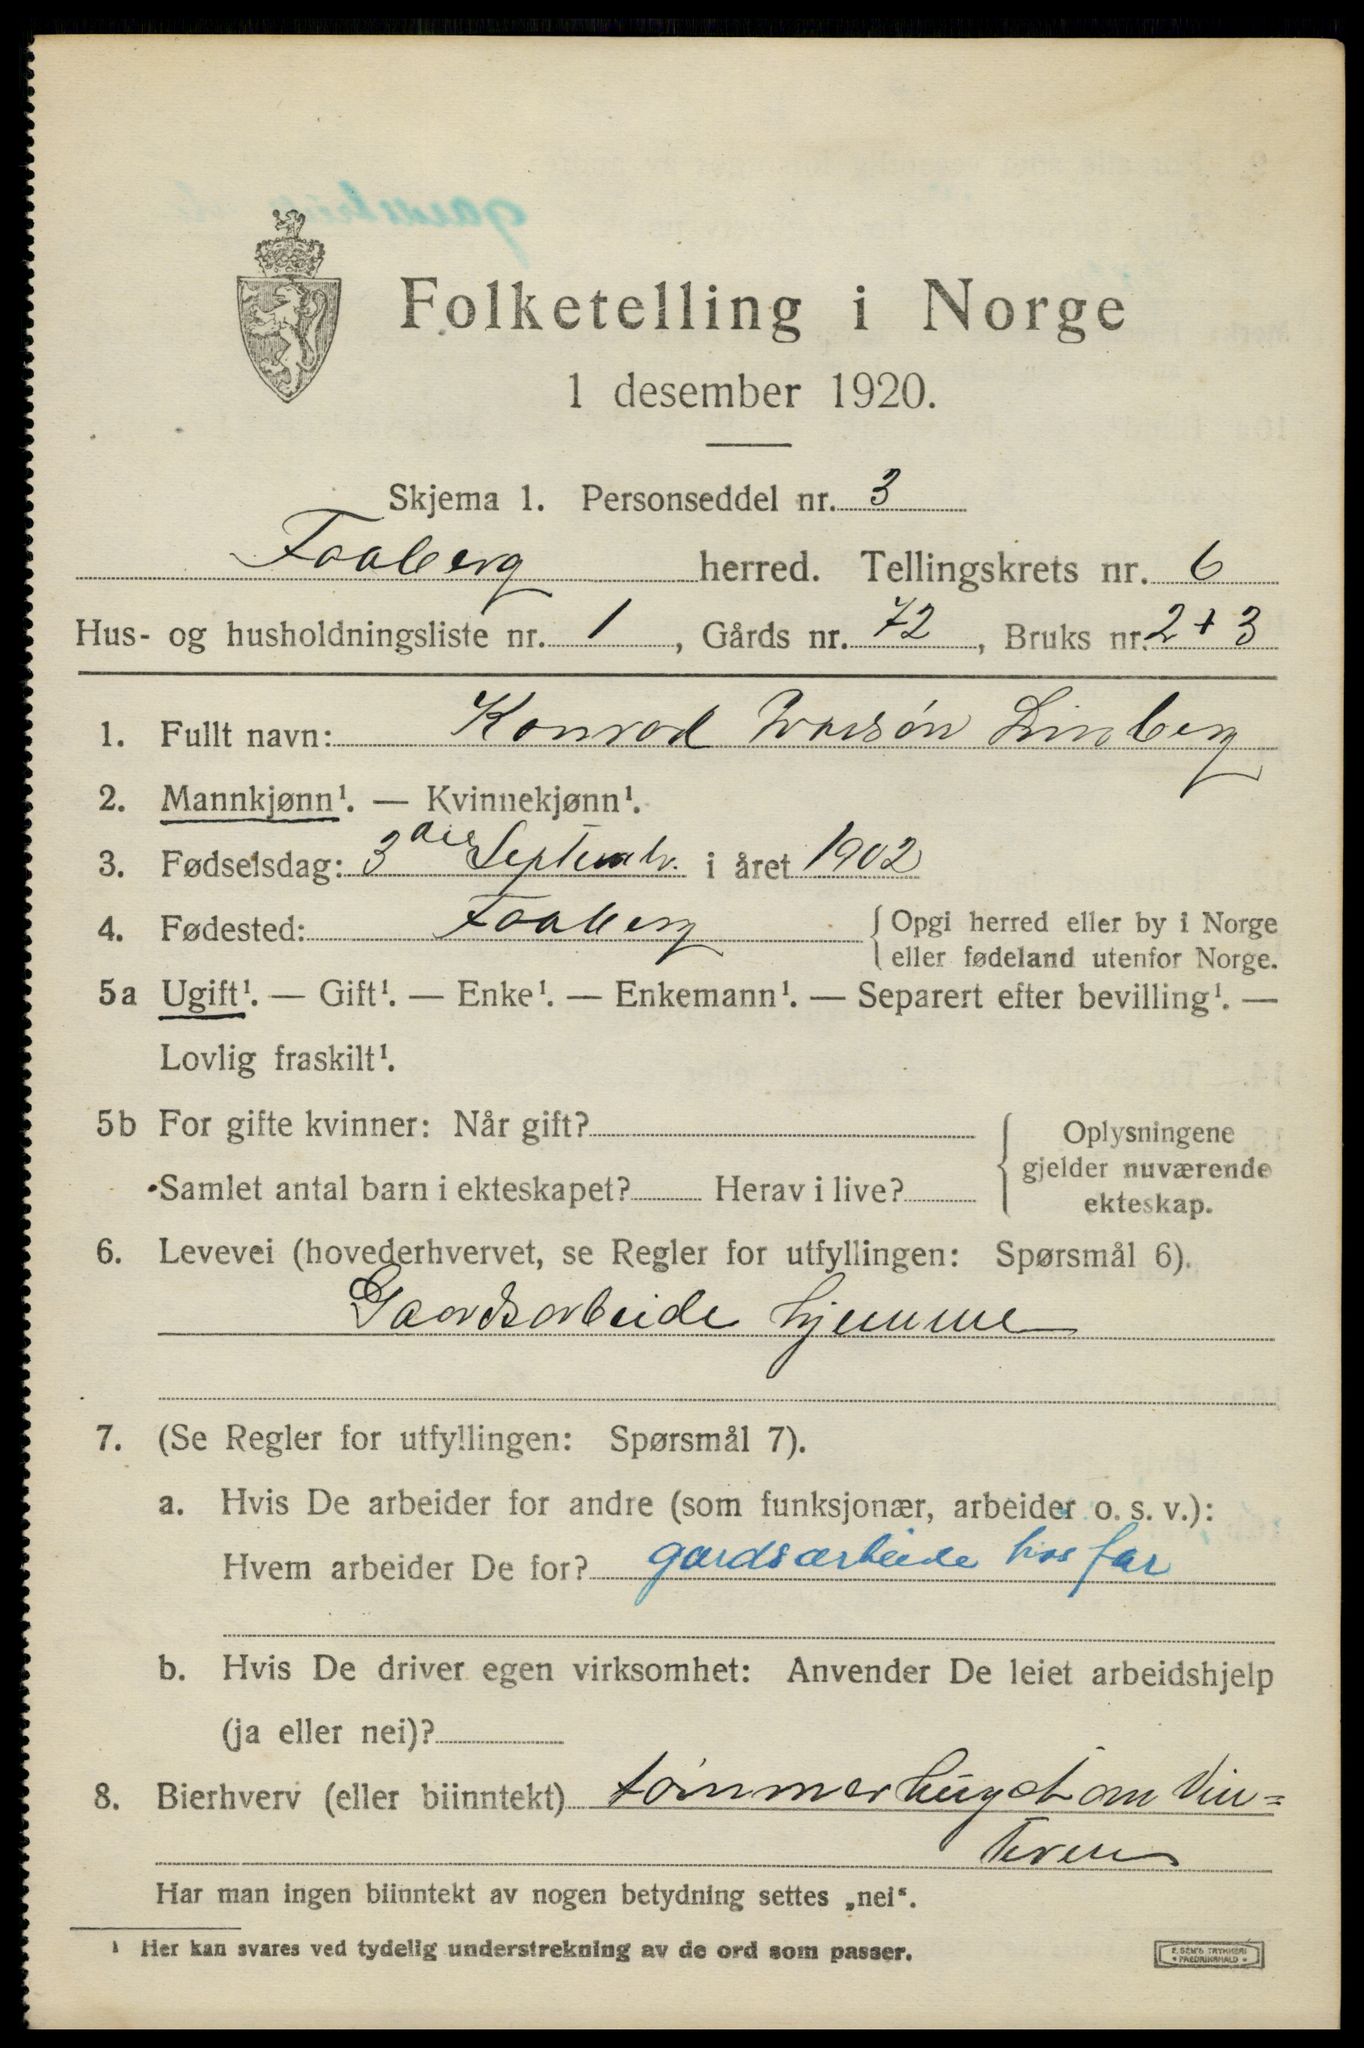 Folketelling i Norge
1 desember 1920.
Skjema 1. Personseddel nr. 3
Faaberg herred. Tellingskrets nr. 6
Hus- og husholdningsliste nr. 1, Gårds nr. 72, Bruks nr. 2 + 3
1. Fullt navn: Konrad Ivarsøn Linberg
2. Mannkjønn¹. — Kvinnekjønn¹.
3. Fødselsdag: 3die Septembr. i året 1902
4. Fødested: Faaberg { Opgi herred eller by i Norge
eller fødeland utenfor Norge.
5a Ugift¹. — Gift¹. — Enke¹. — Enkemann¹. — Separert efter bevilling¹. —
Lovlig fraskilt¹.
5b For gifte kvinner: Når gift? { Oplysningene
gjelder nuværende
Samlet antal barn i ekteskapet? Herav i live? ekteskap.
6. Levevei (hovederhvervet, se Regler for utfyllingen: Spørsmål 6).
Gaardsarbeide hjemme
7. (Se Regler for utfyllingen: Spørsmål 7).
a. Hvis De arbeider for andre (som funksjonær, arbeider o. s. v.):
Hvem arbeider De for? gardsarbeide hos far
b. Hvis De driver egen virksomhet: Anvender De leiet arbeidshjelp
(ja eller nei)?
8. Bierhverv (eller biinntekt) tømmerhugst om Vin=
teren
Har man ingen biinntekt av nogen betydning settes „nei“.
¹ Her kan svares ved tydelig understrekning av de ord som passer.
E. SEM'S TRYKKERI
FREDRIKSHALD